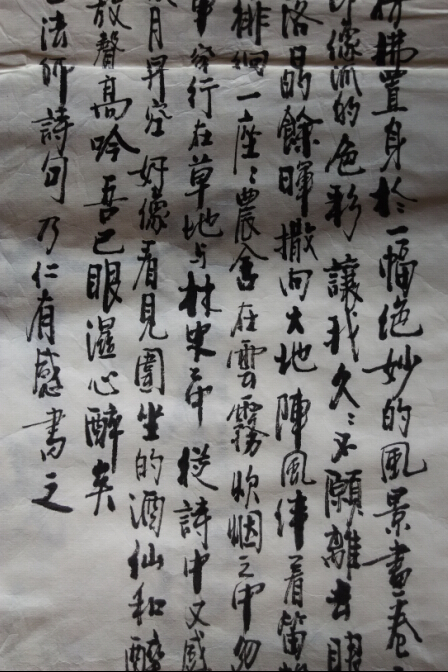 彷拂置身於一幅絕妙的風景畫卷
印像派的色彩讓我久久不願離去
落晶餘暉撒向大地陣風伴着笛
徘徊一座座農舍在雲霧炊烟之中勿
車穿行在草地与林
從詩中又感
月昇空好像看見圍坐的酒仙和醉
放聲高吟吾已眼濕心醉矣
法師詩句乃仁有感書之